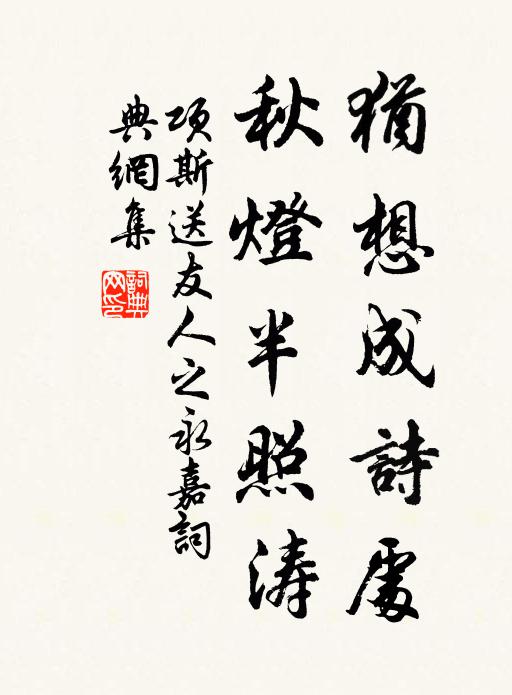 猶想成詩處
秋燈半照濤
項斯送友人之永嘉詞
典網集
詞典網印